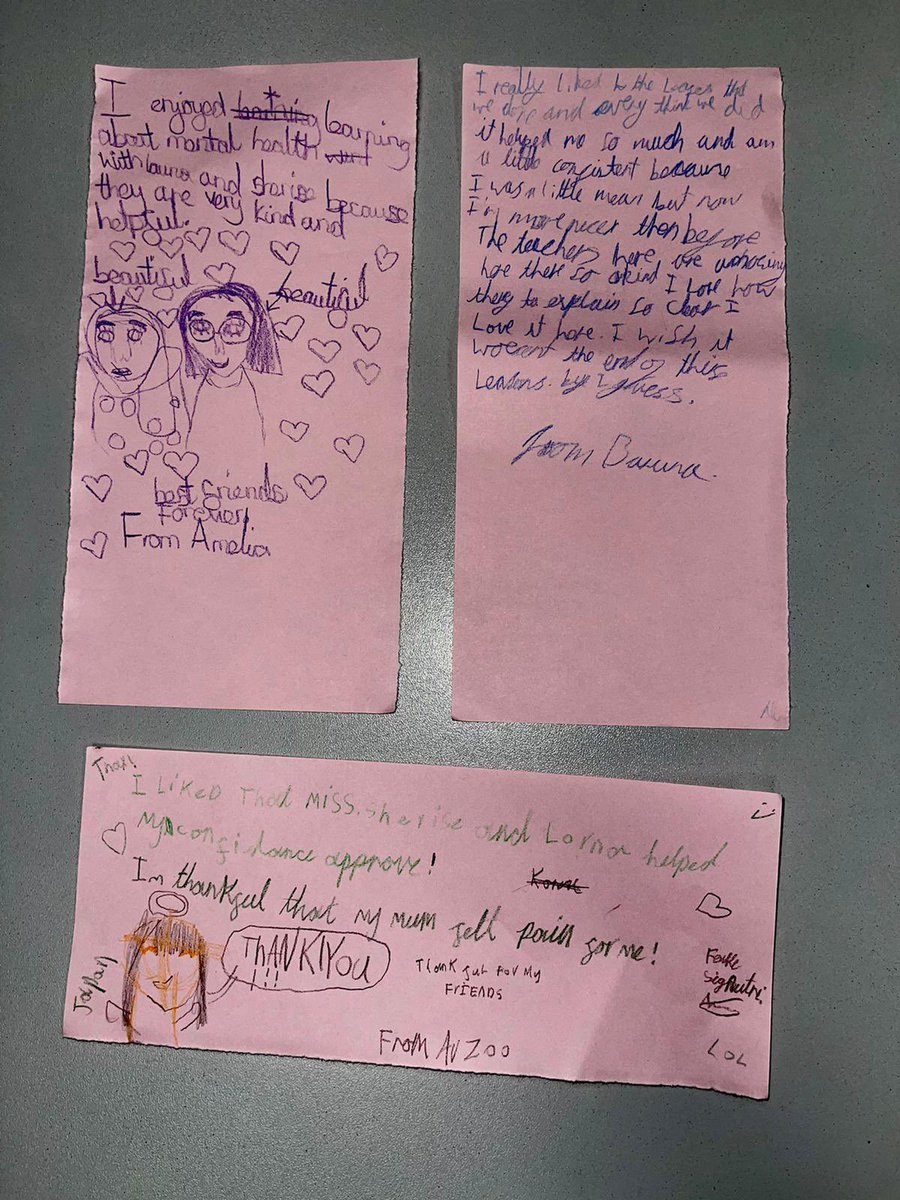 I enjoyed learning
about mental health
with and because
they are very kind and
helpful.
beautiful
beautiful
best friends
Forever
From Amelia
I really liked the that
we done and every think we did
it helped me so much and am
a little because
I was a little mean but now
I'm more nicer then before
The teachers here are
here there so I Love how
they to explain so clear I
Love it here. I wish it
the end of this
by
from
I LIKED That MISS. Sherise and Lorna helped
My confidance approve!
I'm thankful that my mum fell pain for me!
THANK YOU
!!!
Thankful for My
FRIENDS
From
Fake
LOL